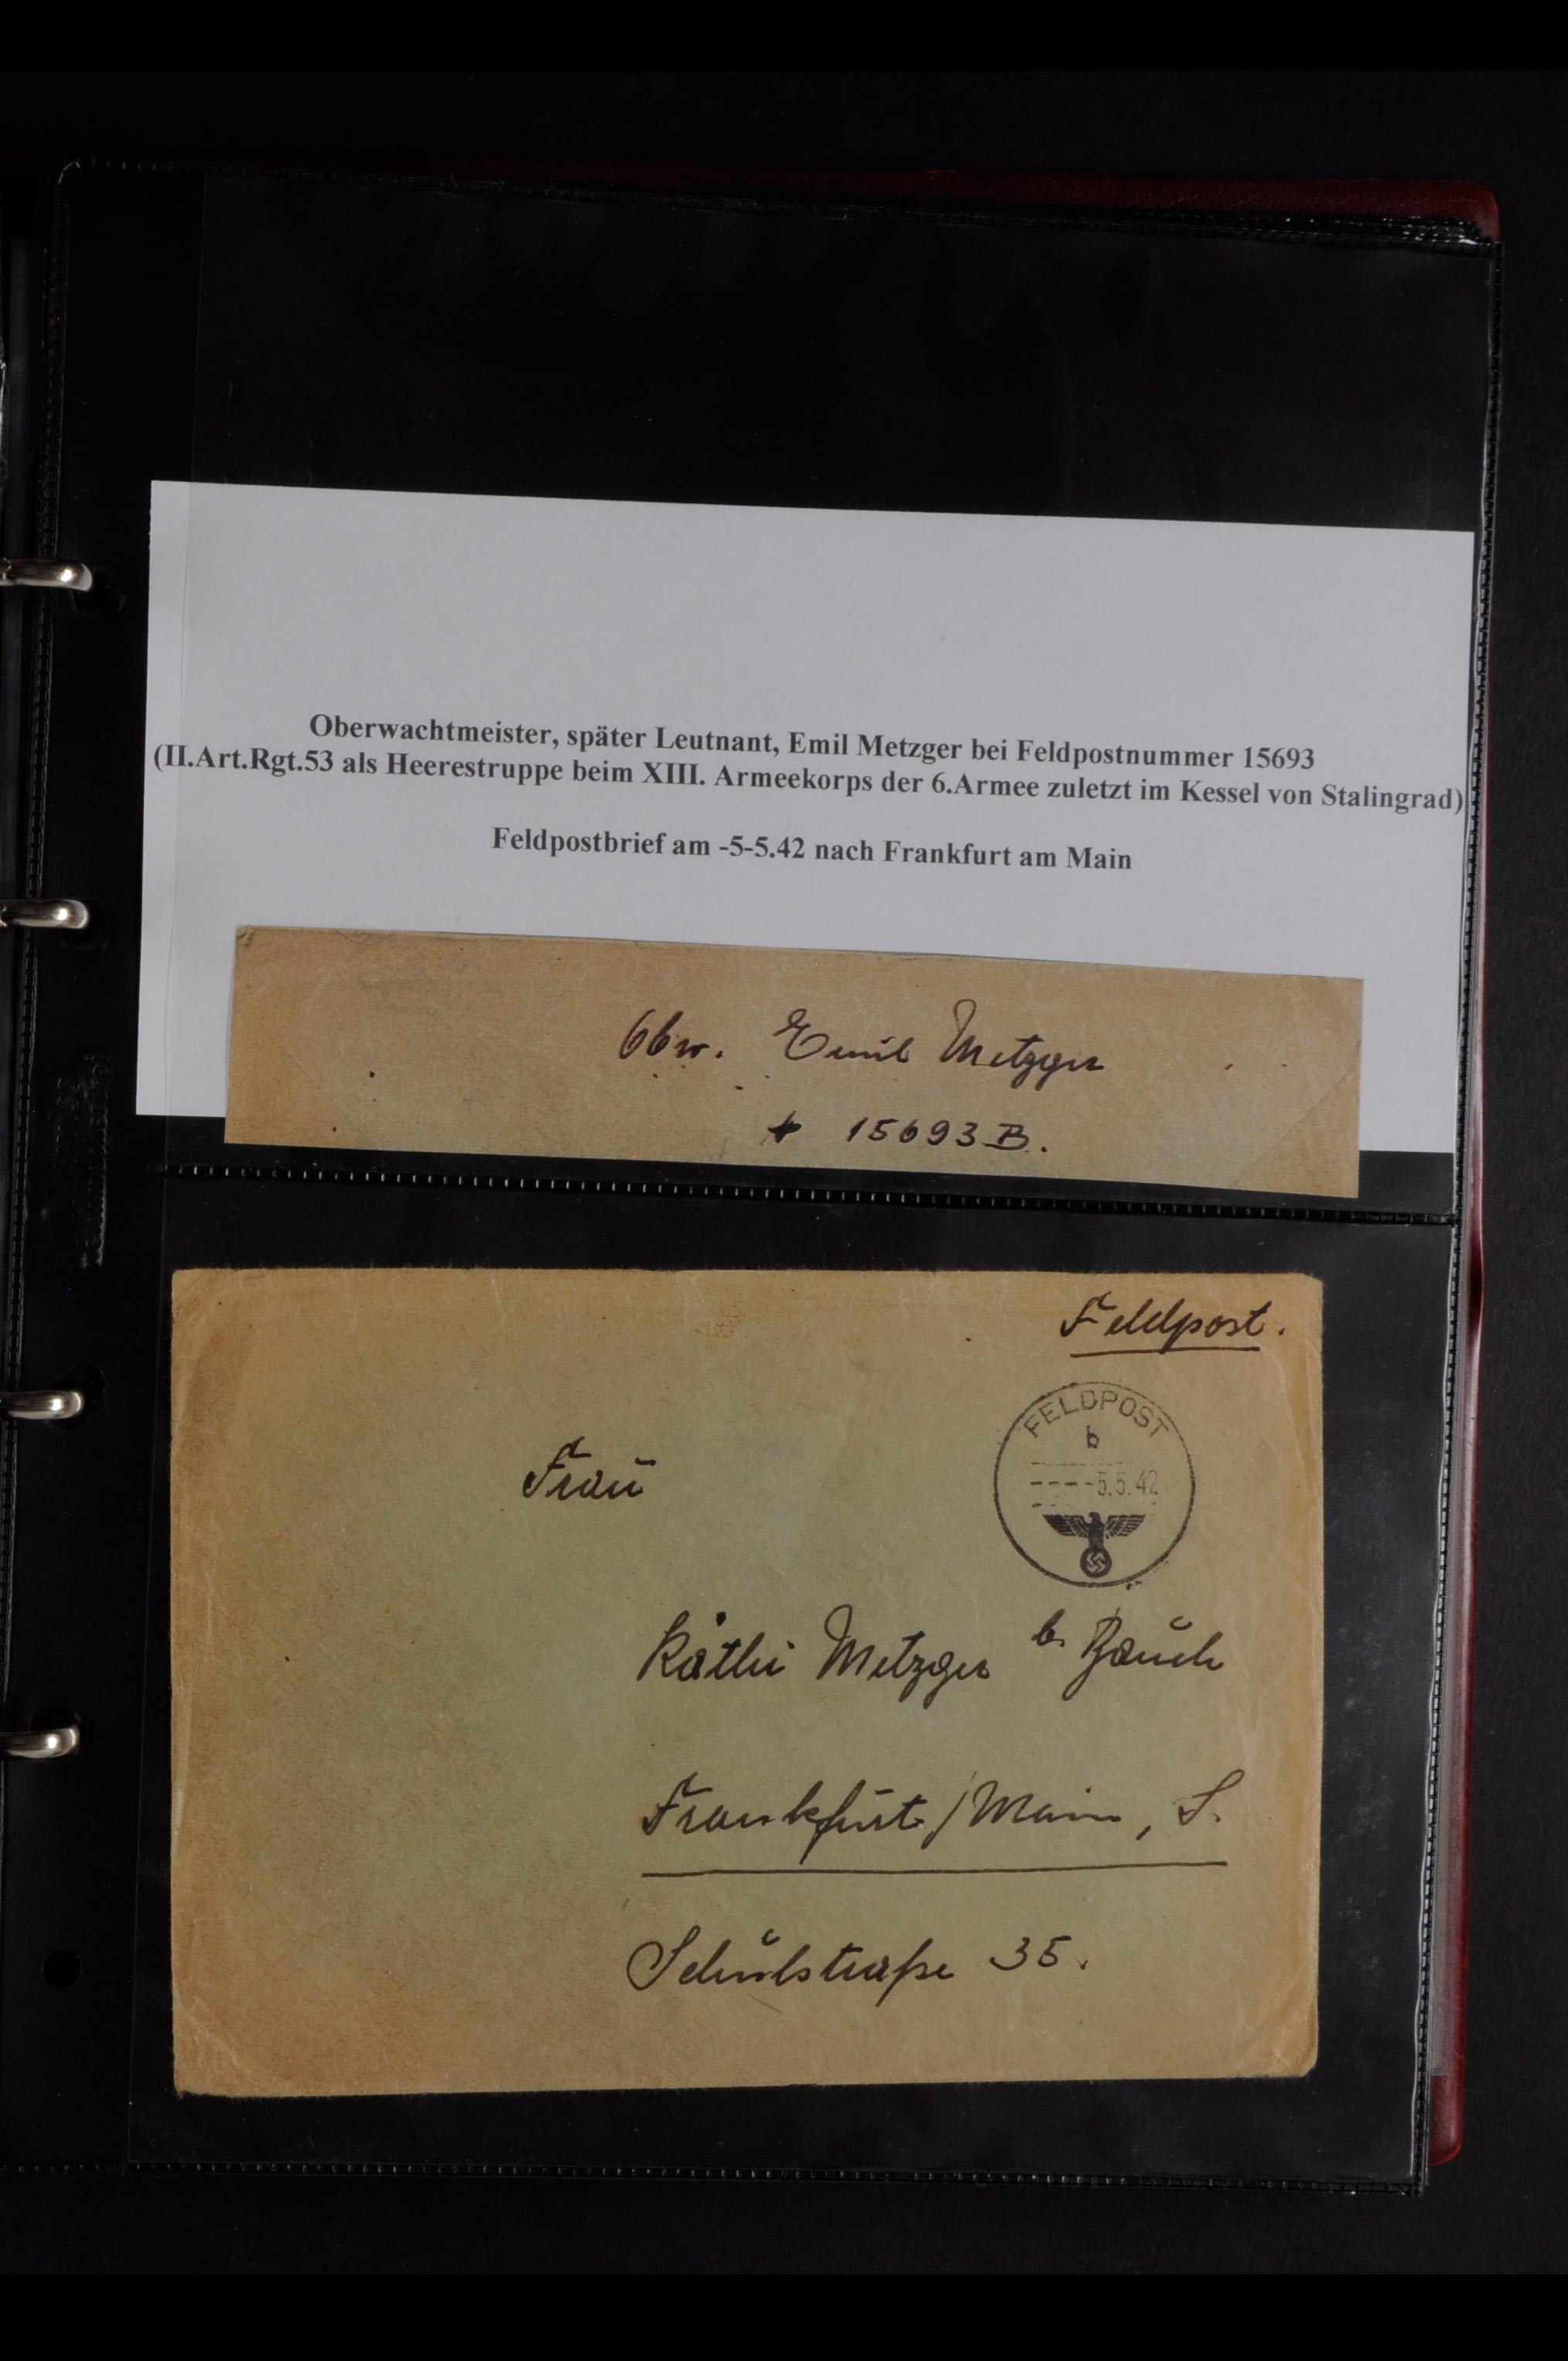 Oberwachtmeister, später Leutnant, Emil Metzger bei Feldpostnummer 15693
(II.Art.Rgt.53 als Heerestruppe beim XIII. Armeekorps der 6.Armee zuletzt im Kessel von Stalingrad)
Feldpostbrief am -5-5.42 nach Frankfurt am Main
Obw. Emil Metzger
15693 B.
Feldpost.
FELDPOST
b
----5.5.42
Frau
Käthi Metzger b. Bauch
Frankfurt/Main, S.
Schulstraße 35.